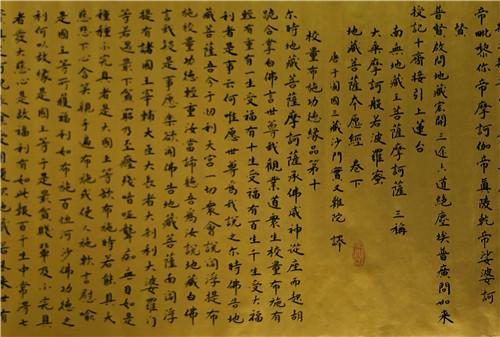 帝毗黎你帝摩訶伽帝真陵乾帝娑婆訶
普督啟問地藏宏開三途六道絕塵埃普廣問如來
校記十齋接引上蓮台
南無地藏王菩薩摩訶薩 三稱
大乘摩訶般若波羅蜜
地藏菩薩本愿經 卷下
唐于闐國三藏沙門實叉難陀 譯
校量布施功德緣品第十
尔時地藏菩薩摩訶薩承佛威神從座而起胡
跪合掌白佛言世尊我觀業道眾生校量布施有
輕重有一生受福有十生受福有百生千生受大福
利者是事云何唯愿世尊為我說之尔時佛告地
藏菩薩吾今于忉利天宮一切眾會說閻浮提布
施校量功德輕重汝當諦聽吾為汝說地藏白佛
言我疑是事愿樂欲聞佛告地藏菩薩南閻浮
提有諸國王宰輔大臣大長者大剎利大婆羅門
等若遇最下貧窮乃至癃殘喑啞聾痴無目如是
種種不完具者是大國王等欲布施時若能具大
慈悲下心含笑親手遍布施或使人施軟言慰喻
是國王等所獲福利如布施百恒河沙佛功德之
利何以故緣是國王等于是最貧賤輩及不完具
者發大慈心是故福利有如此報百千生中常得七